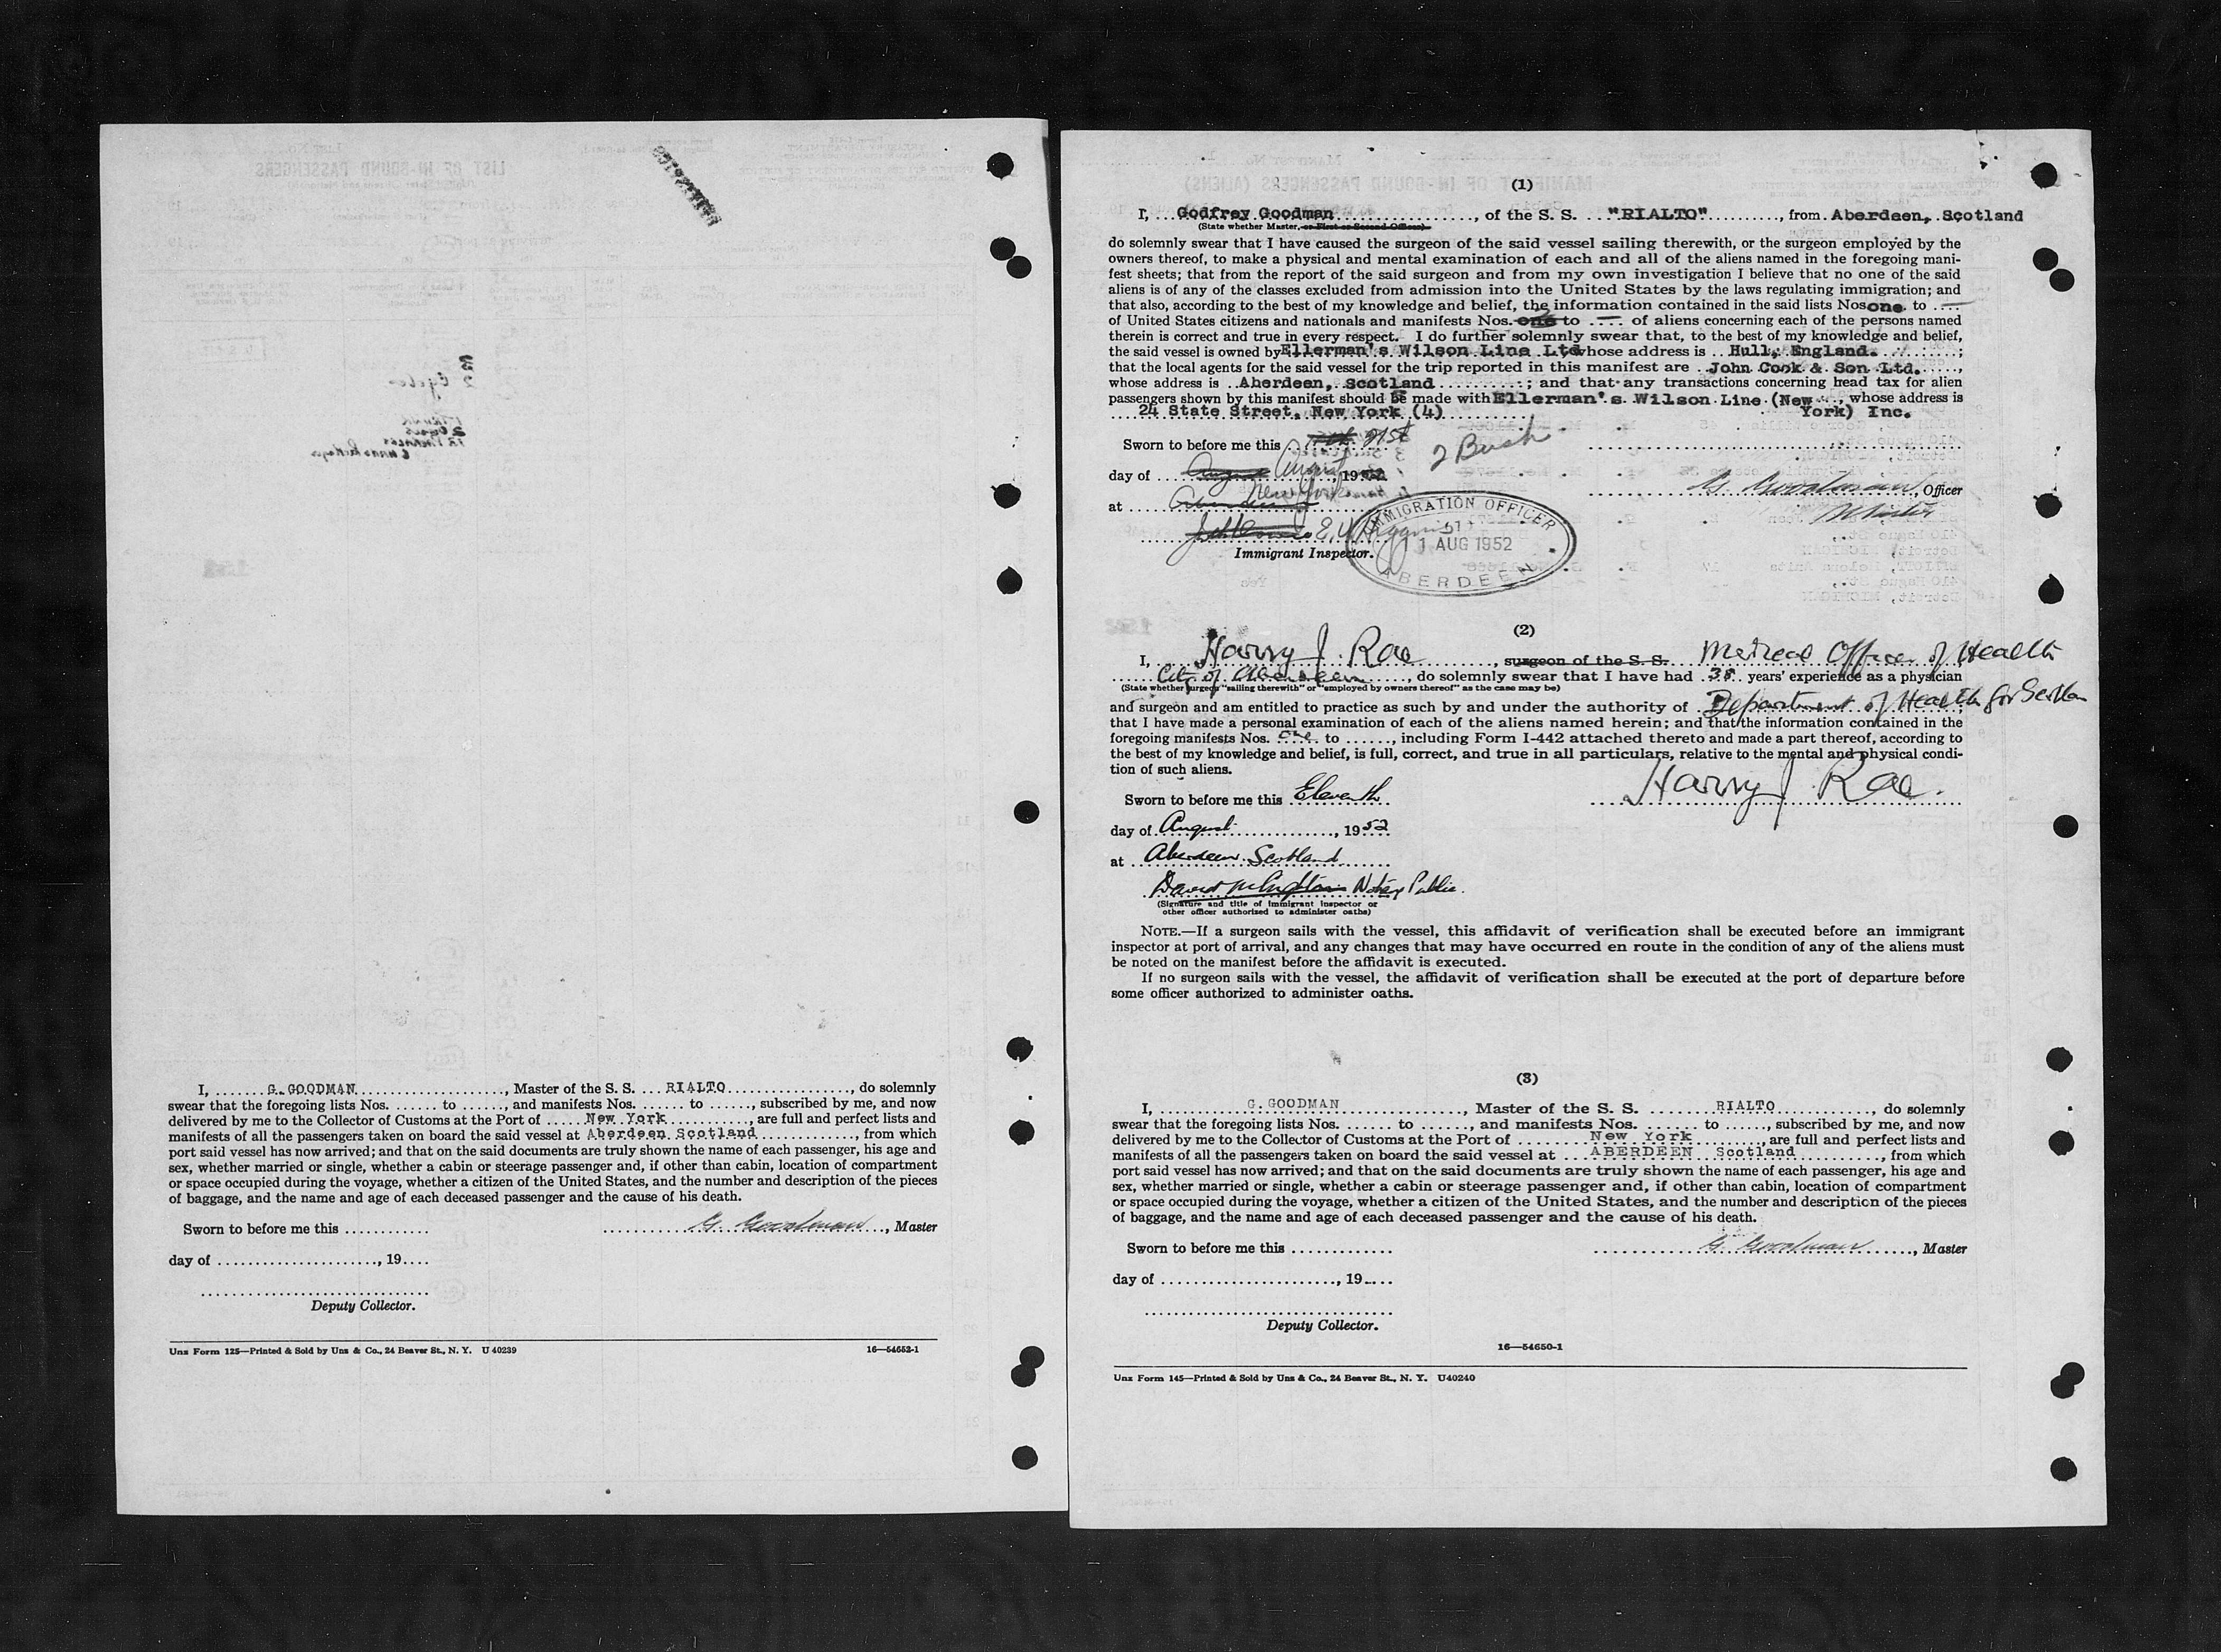 I, G. GOODMAN, Master of the S. S. RIALTO, do solemnly
swear that the foregoing lists Nos. ...... to ......, and manifests Nos. ...... to ......, subscribed by me, and now
delivered by me to the Collector of Customs at the Port of New York, are full and perfect lists and
manifests of all the passengers taken on board the said vessel at Aberdeen Scotland, from which
port said vessel has now arrived; and that on the said documents are truly shown the name of each passenger, his age and
sex, whether married or single, whether a cabin or steerage passenger and, if other than cabin, location of compartment
or space occupied during the voyage, whether a citizen of the United States, and the number and description of the pieces
of baggage, and the name and age of each deceased passenger and the cause of his death.
Sworn to before me this ............ G. Goodman, Master
day of ......................, 19....
Deputy Collector.
Unz Form 125—Printed & Sold by Unz & Co., 24 Beaver St., N. Y. U 40239 16—54652-1
(1)
I, Godfrey Goodman, of the S. S. "RIALTO", from Aberdeen, Scotland
(State whether Master, or First or Second Officer)
do solemnly swear that I have caused the surgeon of the said vessel sailing therewith, or the surgeon employed by the
owners thereof, to make a physical and mental examination of each and all of the aliens named in the foregoing mani-
fest sheets; that from the report of the said surgeon and from my own investigation I believe that no one of the said
aliens is of any of the classes excluded from admission into the United States by the laws regulating immigration; and
that also, according to the best of my knowledge and belief, the information contained in the said lists Nos one to ....
of United States citizens and nationals and manifests Nos. one to .... of aliens concerning each of the persons named
therein is correct and true in every respect. I do further solemnly swear that, to the best of my knowledge and belief,
the said vessel is owned by Ellerman's Wilson Line Ltd whose address is Hull, England. ;
that the local agents for the said vessel for the trip reported in this manifest are John Cook & Son Ltd.,
whose address is Aberdeen, Scotland; and that any transactions concerning head tax for alien
passengers shown by this manifest should be made with Ellerman's Wilson Line (New, whose address is
24 State Street, New York (4) York) Inc.
Sworn to before me this 21st 2 Bush
day of August August, 1952
G. Goodman, Officer
at Aberdeen New York
Master
Immigrant Inspector.
IMMIGRATION OFFICER
11 AUG 1952
ABERDEEN
(2)
I, Harry J. Rae, surgeon of the S. S. Medical Officer of Health
City of Aberdeen, do solemnly swear that I have had 38 years' experience as a physician
(State whether surgeon "sailing therewith" or "employed by owners thereof" as the case may be)
and surgeon and am entitled to practice as such by and under the authority of Department of Health for Scotland
that I have made a personal examination of each of the aliens named herein; and that the information contained in the
foregoing manifests Nos. one to ......, including Form I-442 attached thereto and made a part thereof, according to
the best of my knowledge and belief, is full, correct, and true in all particulars, relative to the mental and physical condi-
tion of such aliens.
Harry J Rae.
Sworn to before me this Eleventh
day of August, 1952
at Aberdeen Scotland
David Notary Public.
(Signature and title of immigrant inspector or
other officer authorized to administer oaths)
NOTE.—If a surgeon sails with the vessel, this affidavit of verification shall be executed before an immigrant
inspector at port of arrival, and any changes that may have occurred en route in the condition of any of the aliens must
be noted on the manifest before the affidavit is executed.
If no surgeon sails with the vessel, the affidavit of verification shall be executed at the port of departure before
some officer authorized to administer oaths.
(3)
I, G. GOODMAN, Master of the S. S. RIALTO, do solemnly
swear that the foregoing lists Nos. ...... to ......, and manifests Nos. ...... to ......, subscribed by me, and now
delivered by me to the Collector of Customs at the Port of New York, are full and perfect lists and
manifests of all the passengers taken on board the said vessel at ABERDEEN Scotland, from which
port said vessel has now arrived; and that on the said documents are truly shown the name of each passenger, his age and
sex, whether married or single, whether a cabin or steerage passenger and, if other than cabin, location of compartment
or space occupied during the voyage, whether a citizen of the United States, and the number and description of the pieces
of baggage, and the name and age of each deceased passenger and the cause of his death.
Sworn to before me this .............. G. Goodman, Master
day of ........................, 19.....
Deputy Collector.
16—54650-1
Unz Form 145—Printed & Sold by Unz & Co., 24 Beaver St., N. Y. U40240